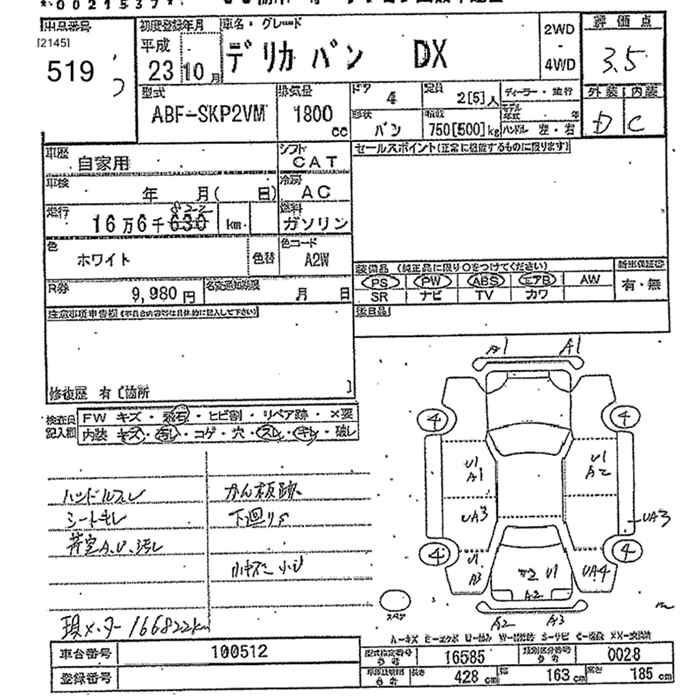 *0021537*
出品番号
[2145]
519
初度登録年月
平成
23 10 月
車名・グレード
デリカ バン DX
2WD
・
4WD
評価点
3.5
外装 内装
D C
型式
ABF-SKP2VM
排気量
1800
cc
ドア
4
定員
2[5]人
ディーラー・並行
形状
バン
積載
750[500]kg
モデル年式 年
ハンドル 左・右
車歴
自家用
シフト
CAT
セールスポイント(正常に機能するものに限ります)
車検
年 月( 日)
冷房
AC
走行
822
16万6千630 km
燃料
ガソリン
色
ホワイト
色替
色コード
A2W
装備品(純正品に限り○をつけてください)
PS PW ABS エアB AW
SR ナビ TV カワ
新車保証書
有・無
R券
9,980円
名変通知期限
月 日
後日品
注意事項申告欄
修復歴 有〔箇所 〕
検査員記入欄
FW キズ・飛石・ヒビ割・リペア跡・X要
内装 キズ・汚れ・コゲ・穴・スレ・キレ・破レ
ハンドルスレ
シートキレ
荷室A.U.汚レ
かん板跡
下廻りS
小キズ 小U
現メーター166822km
A1 A1
4 4
U1
A1
U1
A2
UA3
UA3
4 4
U1
A3
U1
A2
UA4
A2 A3
スペア
A-キズ E-エクボ U-凹み S-サビ C-腐食
車台番号
100512
登録番号
型式指定番号
参考
16585
類別区分番号
参考
0028
長さ
428 cm
幅
163 cm
高さ
185 cm